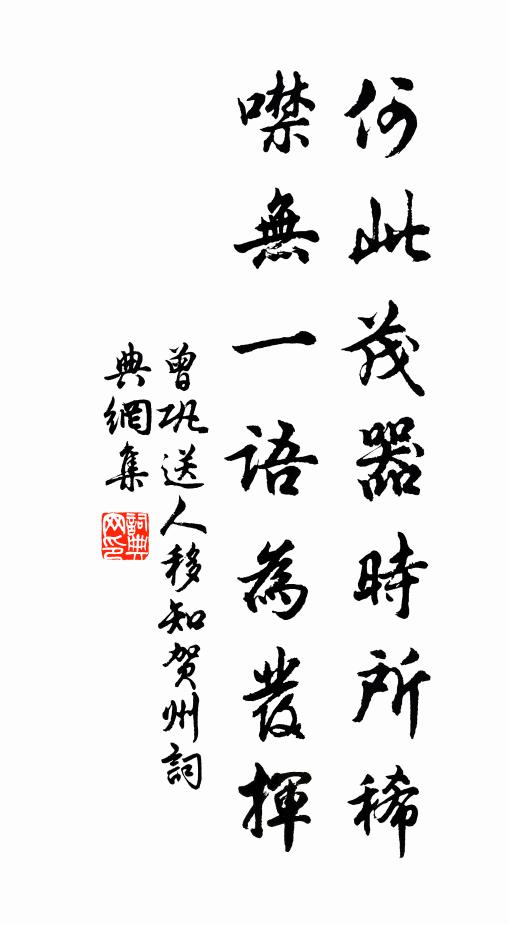 何此茂器時所稀
噤無一語為發揮
曾鞏送人移知賀州詞
典網集
詞典網印